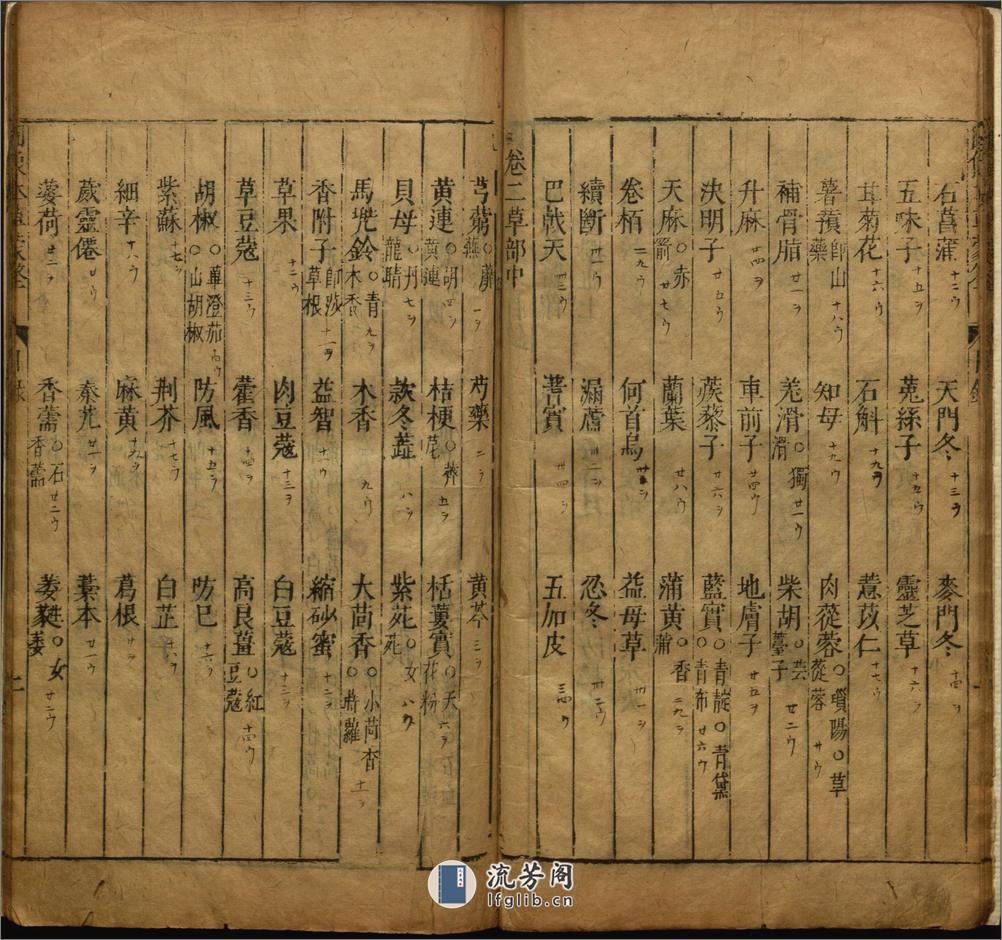 石菖蒲 十二ウ 天門冬 十三ヲ 麥門冬 十四ヲ
五味子 十五ヲ 菟絲子 十五ウ 靈芝草 十六ヲ
甘菊花 十六ウ 石斛 十九ヲ 薏苡仁 十七ウ
薯蕷 卽山藥 十八ウ 知母 十九ウ 肉蓯蓉○瑣陽○草蓯蓉 廿ウ
補骨脂 廿一ヲ 羌滑○獨滑 廿一ウ 柴胡○芸薹子 廿二ウ
升麻 廿四ヲ 車前子 廿四ウ 地膚子 廿五ヲ
決明子 廿五ウ 蒺藜子 廿六ヲ 藍實○青靛○青黛○青布 廿六ウ
天麻○赤箭 廿七ウ 蘭葉 廿八ウ 蒲黄○香蒲 二九ヲ
卷栢 二九ウ 何首烏 益母草 卅一ヲ
續斷 卅一ウ 漏蘆 三二ヲ 忍冬 卅二ウ
巴戟天 卅三ウ 蓍實 卅四ヲ 五加皮 三四ウ
卷二草部中
芎藭○蘼蕪 一ヲ 芍藥 二ヲ 黄芩 三ヲ
黄連○胡黄連 四ヲ 桔梗○薺苨 五ヲ 栝蔞實○天花粉 六ヲ
貝母○州龍睛 七ヲ 款冬蕋 八ヲ 紫菀○女菀 八ウ
馬兜鈴○青木香 九ヲ 木香 九ウ 大茴香○小茴香○蒔蘿 十ヲ
香附子 卽莎草根 十一ヲ 益智 十一ウ 縮砂蜜 十二ヲ
草果 十二ウ 肉豆蔻 十三ヲ 白豆蔻 十三ヲ
草豆蔻 十三ウ 藿香 十四ヲ 高良薑○紅豆蔻 十四ウ
胡椒○蓽澄茄○山胡椒 防風 十五ヲ 防巳 十六ヲ
紫蘇 十七ヲ 荆芥 十七ウ 白芷 十八ヲ
細辛 十八ウ 麻黄 十九ウ 葛根 廿ヲ
葳靈僊 廿ウ 秦艽 廿一ヲ 藁本 廿一ウ
薄荷 廿二ヲ 香薷○石香薷 廿二ウ
流芳阁
lfglib.cn